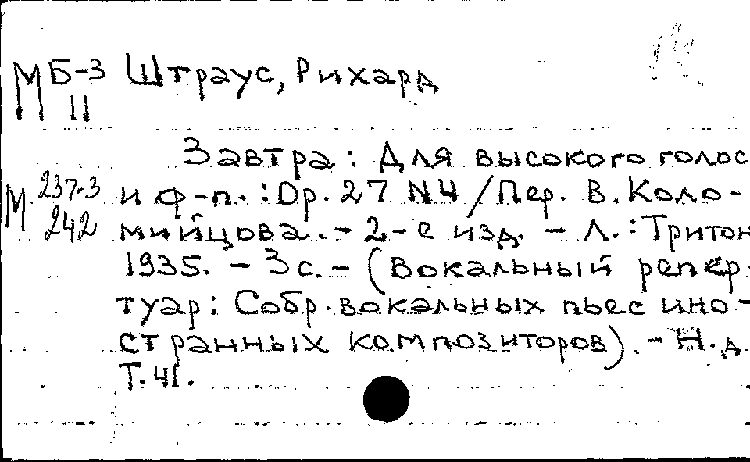 МБ-3 Штраус, Рихард
II
Завтра: Для высокого голос
М 237-3 и ф-п.: Op. 27 N4 / Пер. В. Коло-
242 мийцова. - 2-е изд. - Л.: Тритон
1935. - 3 с. - (Вокальный репер-
туар: Собр. вокальных пьес ино-
странных композиторов). - Н.д.
Т. 41.